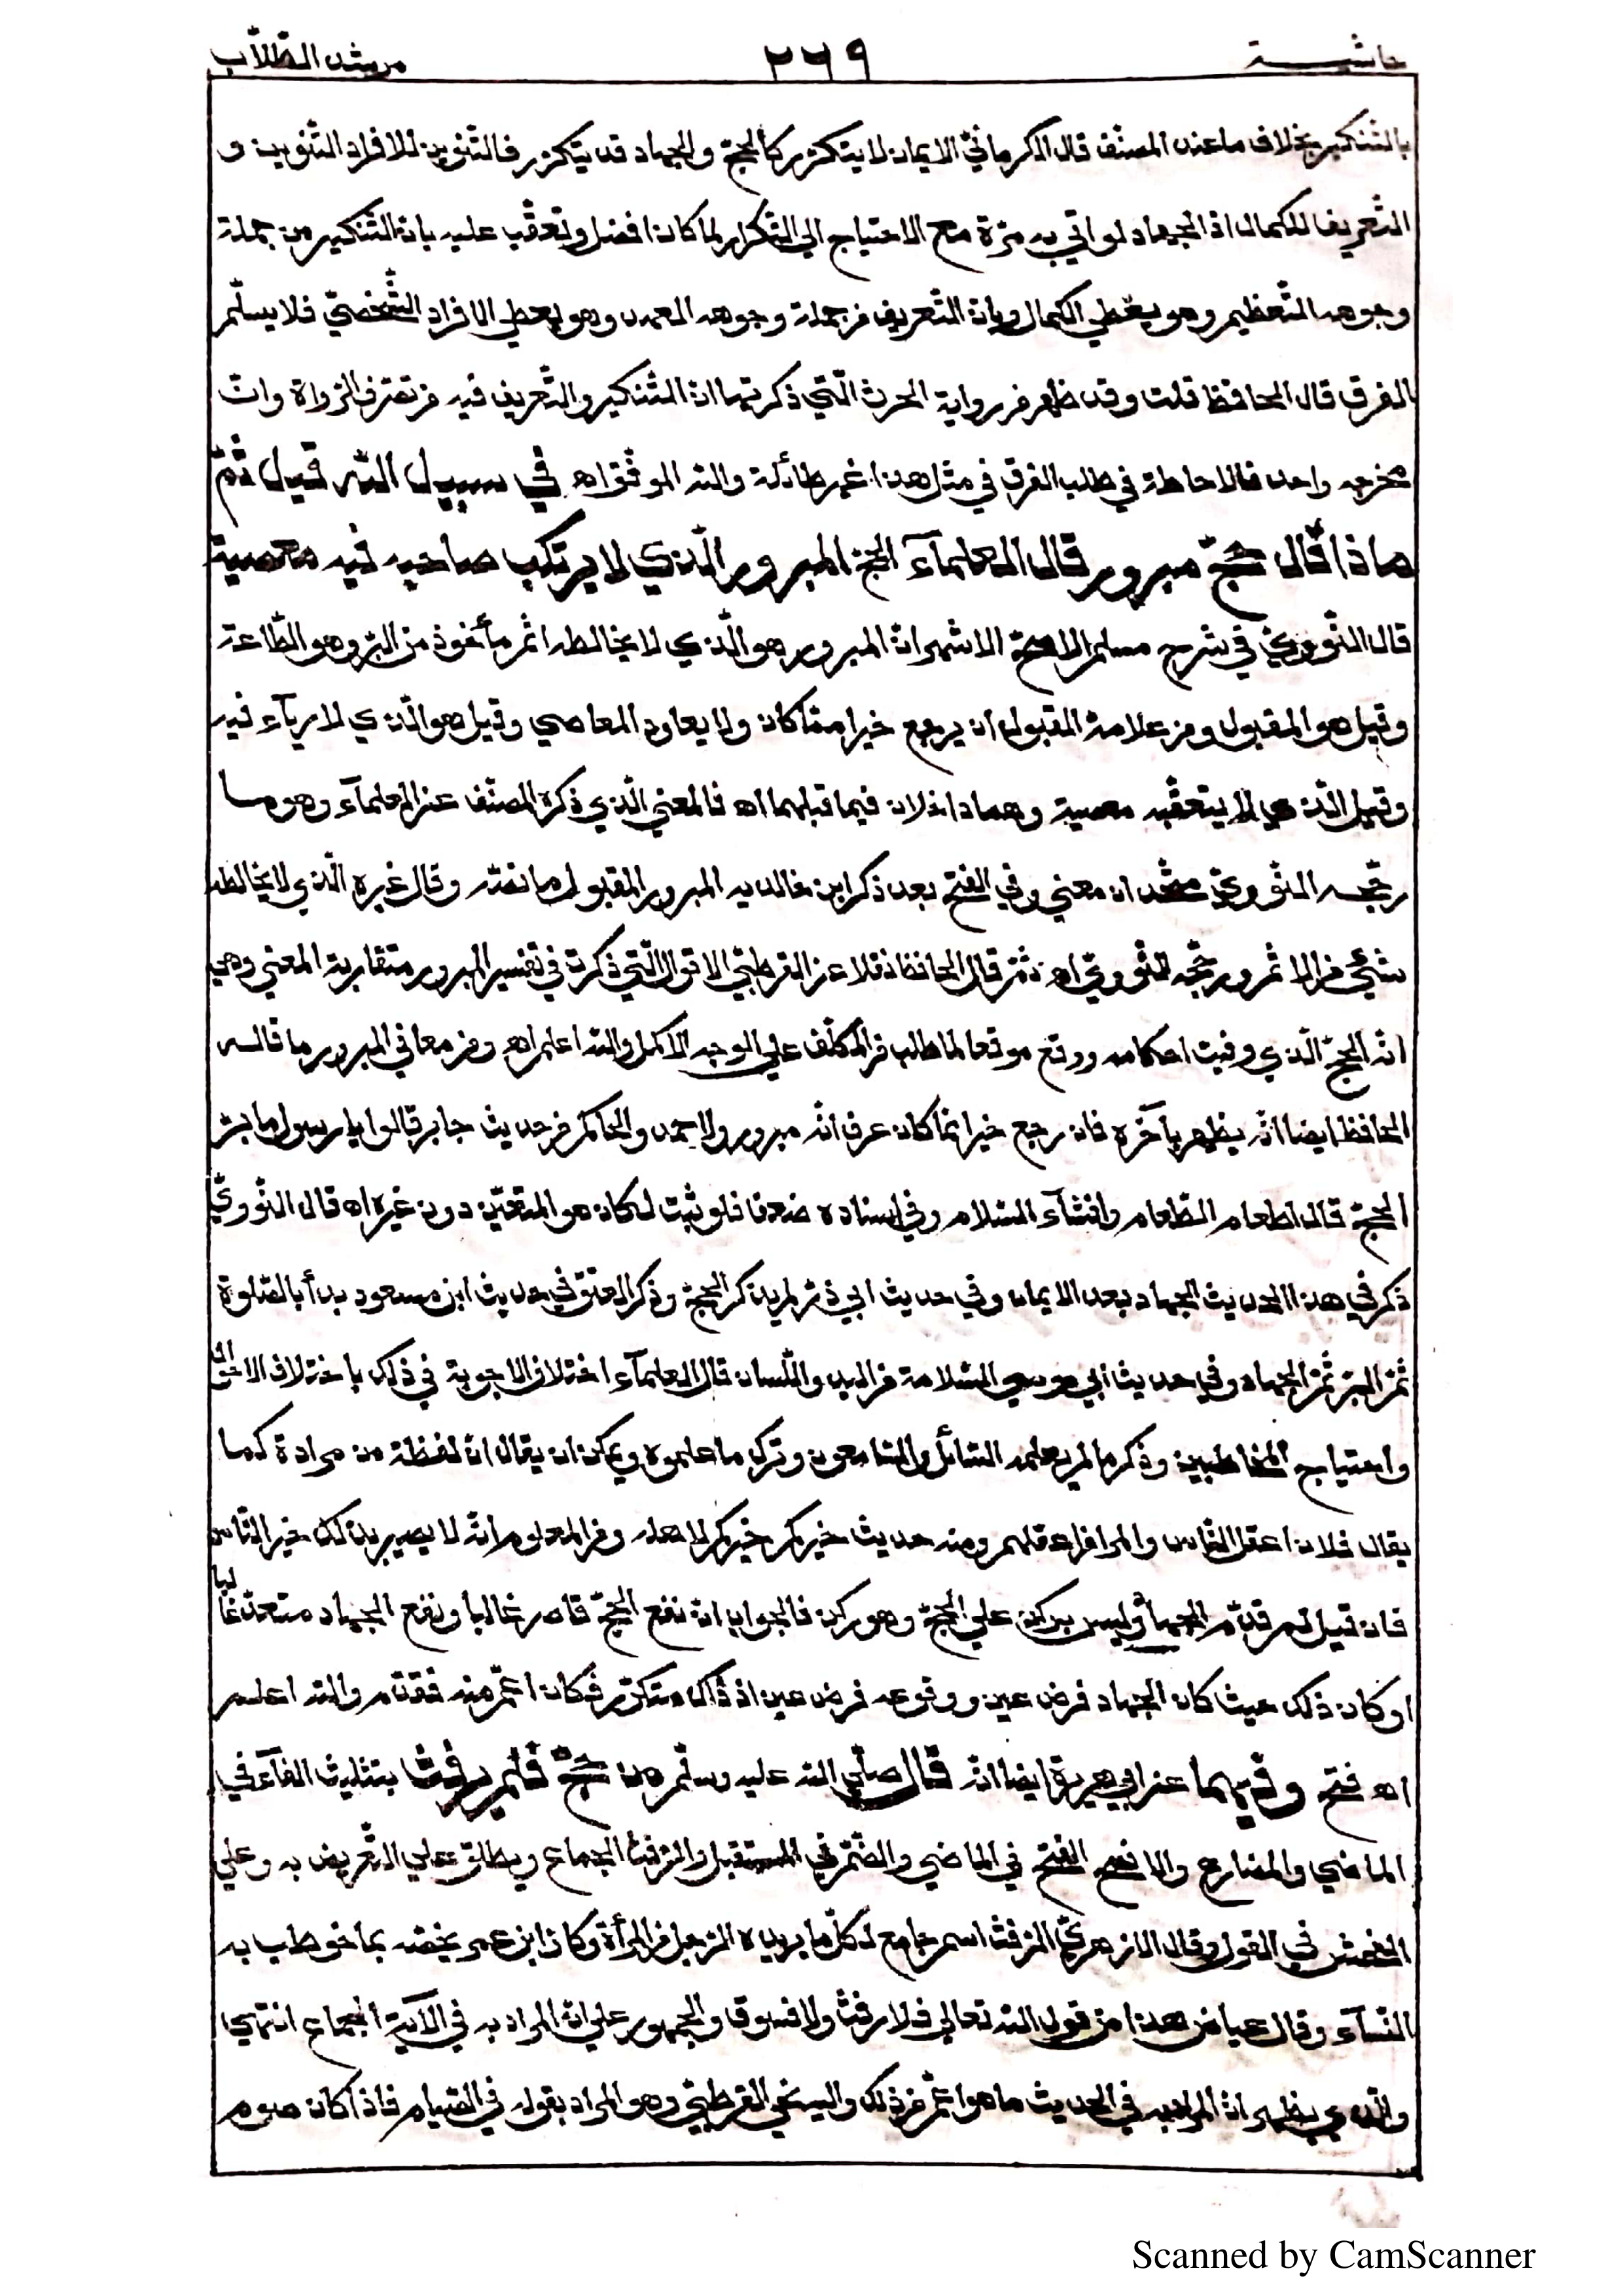 حاشيـــة
٢٦٩
مرشد الطّلّاب
بالتّنكير بخلاف ما عند المصنّف قال الكرمانيّ الايمان لا يتكرّر كالحجّ والجهاد قد يتكرّر فالتّنوين للافراد التّنويني و
التّعريف للكمال اذ الجهاد لو اتي به مرّة مع الاحتياج الي التّكرار لما كان افضل وتعقّب عليه بانّ التّنكير من جملة
وجوهه التّعظيم وهو يعطي الكمال وبانّ التّعريف من جملة وجوهه العهد وهو يعطي الافراد الشّخصيّ فلا يسلّم
الفرق قال الحافظ قلت وقد ظهر من رواية الحرث الّتي ذكرتها انّ التّنكير والتّعريف فيه من تصرّف الرّواة وانّ
مخرجه واحد فالاحاطة في طلب الفرق في مثل هذا غير طائلة والله الموفّق اه في سبيل الله قيل ثمّ
ماذا قال حجّ مبرور قال العلمآء الحجّ المبرور الّذي لا يرتكب صاحبه فيه معصية
قال النّوويّ في شرح مسلم الاصحّ الاشهر انّ المبرور هو الّذي لا يخالطه اثم مأخوذ من البرّ وهو الطّاعة
وقيل هو المقبول ومن علامة القبول ان يرجع خيرا ممّا كان ولا يعاود المعاصي وقيل هو الّذي لا ريآء فيه
وقيل الّذي لا يتعقّبه معصية وهما داخلان فيما قبلهما اه فالمعني الّذي ذكره المصنّف عن العلمآء وهو ما
رجّحه النّوويّ متّحدان معني وفي الفتح بعد ذكر ابن خالويه المبرور المقبول ما نصّه وقال غيره الّذي لا يخالطه
شيّ من الاثم ورجّحه النّوويّ اه ثمّ قال الحافظ نقلا عن القرطبيّ الاقوال الّتي ذكرت في تفسير المبرور متقاربة المعني وهي
انّه الحجّ الّذي وفيت احكامه ووقع موقعا لما طلب من المكلّف علي الوجه الاكمل والله اعلم اه ومن معاني المبرور ما قاله
الحافظ ايضا انّه يظهر بآخره فان رجع خيرا ممّا كان عرف انّه مبرور ولاحمد والحاكم من حديث جابر قالوا يا رسول ما برّ
الحجّ قال اطعام الطّعام وافشآء السّلام وفي اسناده ضعف فلو ثبت لكان هو المتعيّن دون غيره اه قال النّوويّ
ذكر في هذا الحديث الجهاد بعد الايمان وفي حديث ابي ذرّ لم يذكر الحجّ وذكر العتق وفي حديث ابن مسعود بدأ بالصّلوة
ثمّ البرّ ثمّ الجهاد وفي حديث ابي موسي السّلامة من اليد واللّسان قال العلمآء اختلاف الاجوبة في ذلك باختلاف الاحوال
واحتياج المخاطبين وذكر ما لم يعلمه السّائل والسّامعون وترك ما علموه ويمكن ان يقال انّ لفظة من مرادة كما
يقال فلان اعقل النّاس والمراد من اعقلهم ومنه حديث خيركم خيركم لاهله ومن المعلوم انّه لا يصير بذلك خير النّاس
فان قيل لم قدّم الجهاد وليس بركن علي الحجّ وهو ركن فالجواب انّ نفع الحجّ قاصر غالبا ونفع الجهاد متعدّ غالبا
او كان ذلك حيث كان الجهاد فرض عين ووقوعه فرض عين اذ ذاك متكرّر فكان اهمّ منه فقدّم والله اعلم
اه فتح وفيهما عن ابي هريرة ايضا انّه قال صلّي الله عليه وسلّم من حجّ فلم يرفث بتثليث الفآء في
الماضي والمضارع والافصح الفتح في الماضي والضّمّ في المستقبل والرّفث الجماع ويطلق علي التّعريض به وعلي
الفحش في القول وقال الازهريّ الرّفث اسم جامع لكلّ ما يريده الرّجل من المرأة وكان ابن عمر يخصّه بما خوطب به
النّسآء وقال عياض هذا من قول الله تعالي فلا رفث ولا فسوق والجمهور علي انّ المراد به في الآية الجماع انتهي
والّذي يظهر انّ المراد به في الحديث ما هو اعمّ من ذلك واليه نحي القرطبيّ وهو المراد بقوله في الصّيام فاذا كان صوم
Scanned by CamScanner